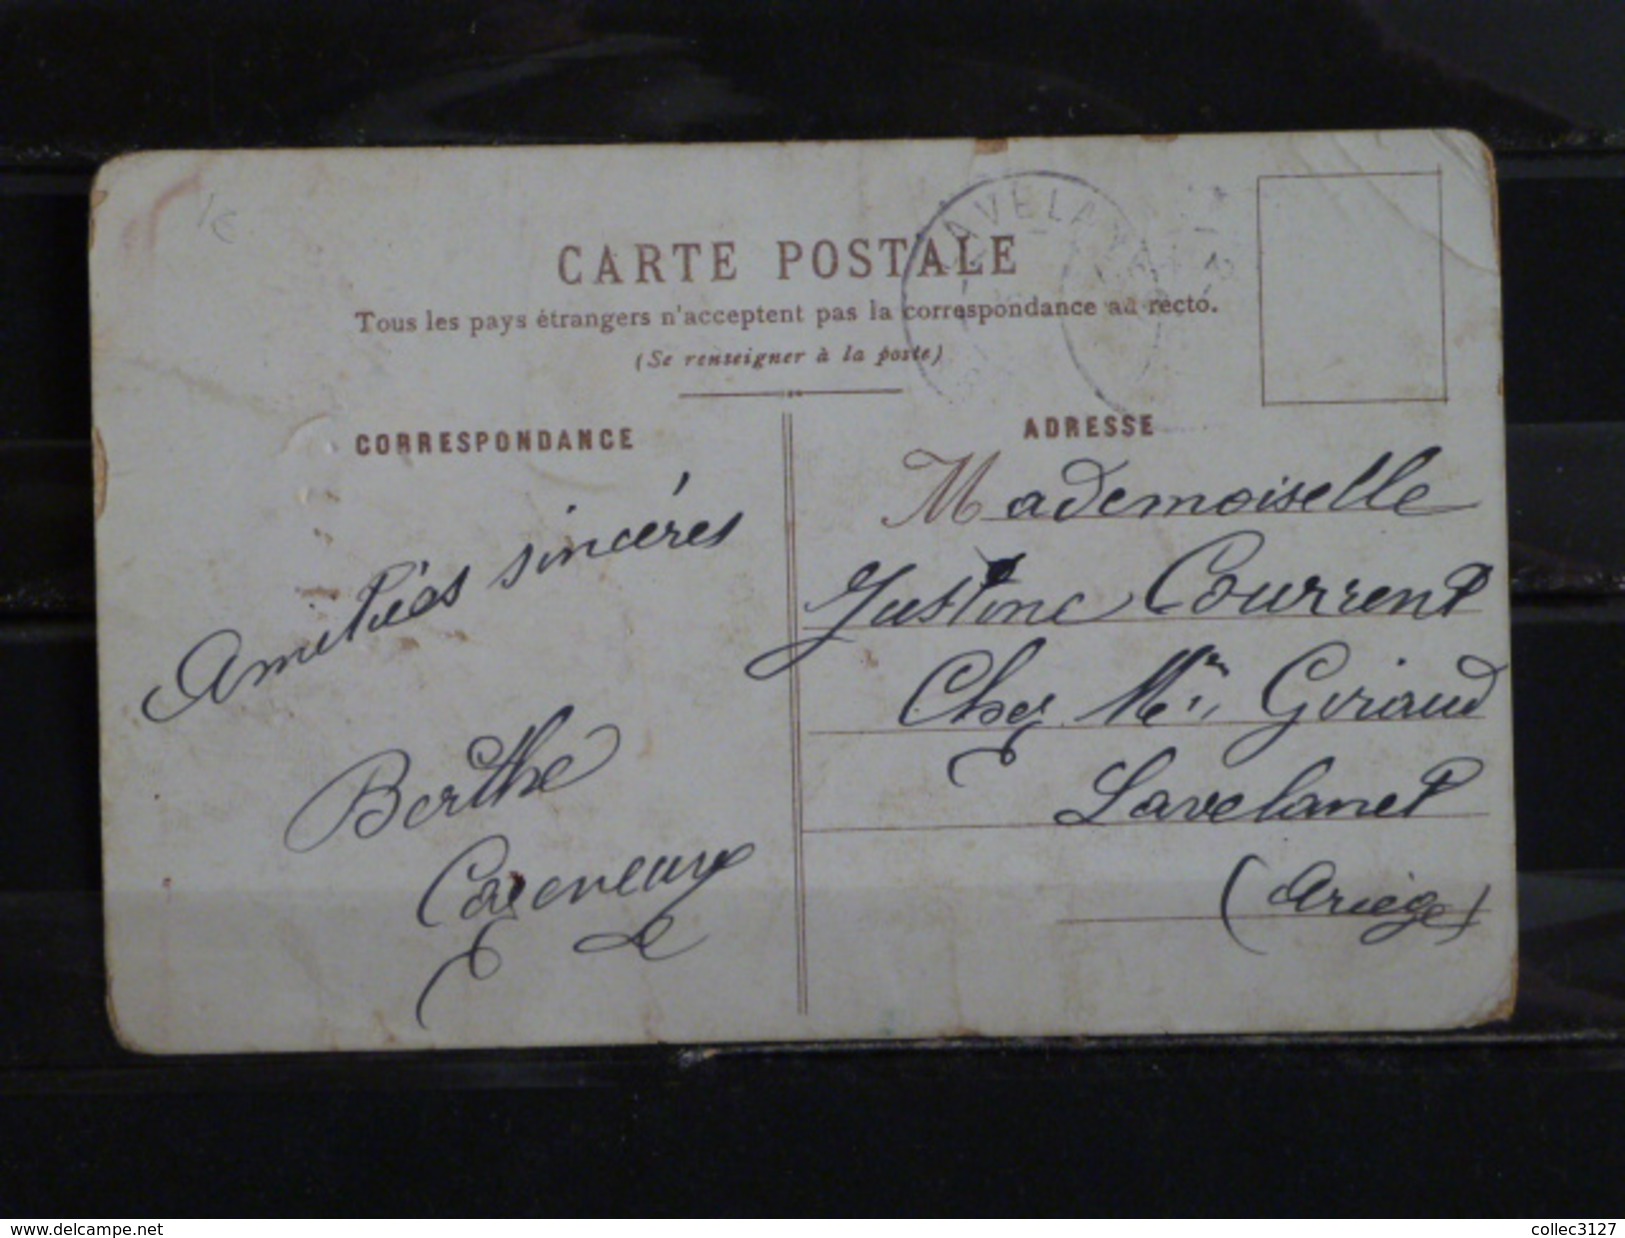 1€
LAVELANET
CARTE POSTALE
Tous les pays étrangers n'acceptent pas la correspondance au recto.
(Se renseigner à la poste)
CORRESPONDANCE
Amitiés sincéres
Berthe
ADRESSE
Mademoiselle
Justine Courrent
Chez Mr Giraud
Lavelanet
(Ariège)
www.delcampe.net
collec3127